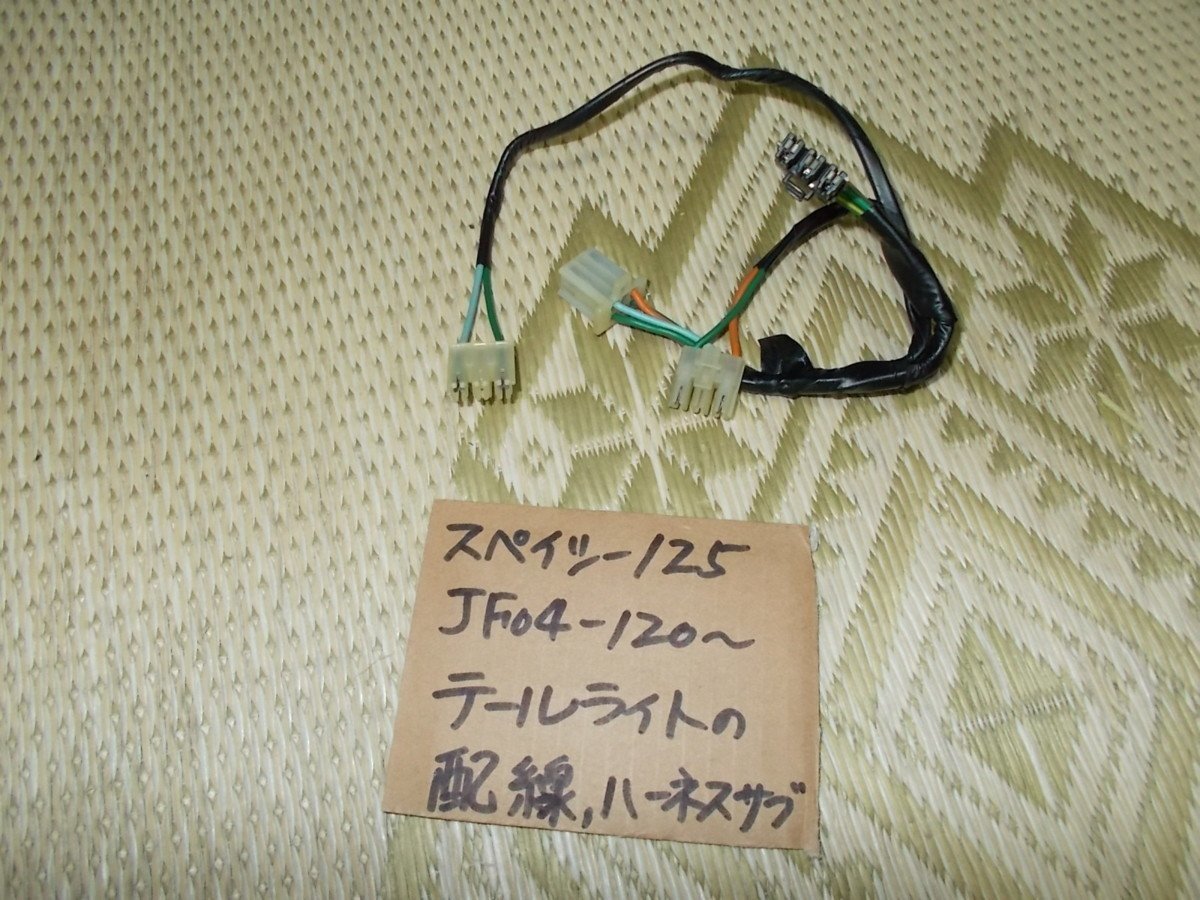 スペイシー125
JF04-120〜
テールライトの
配線,ハーネスサブ